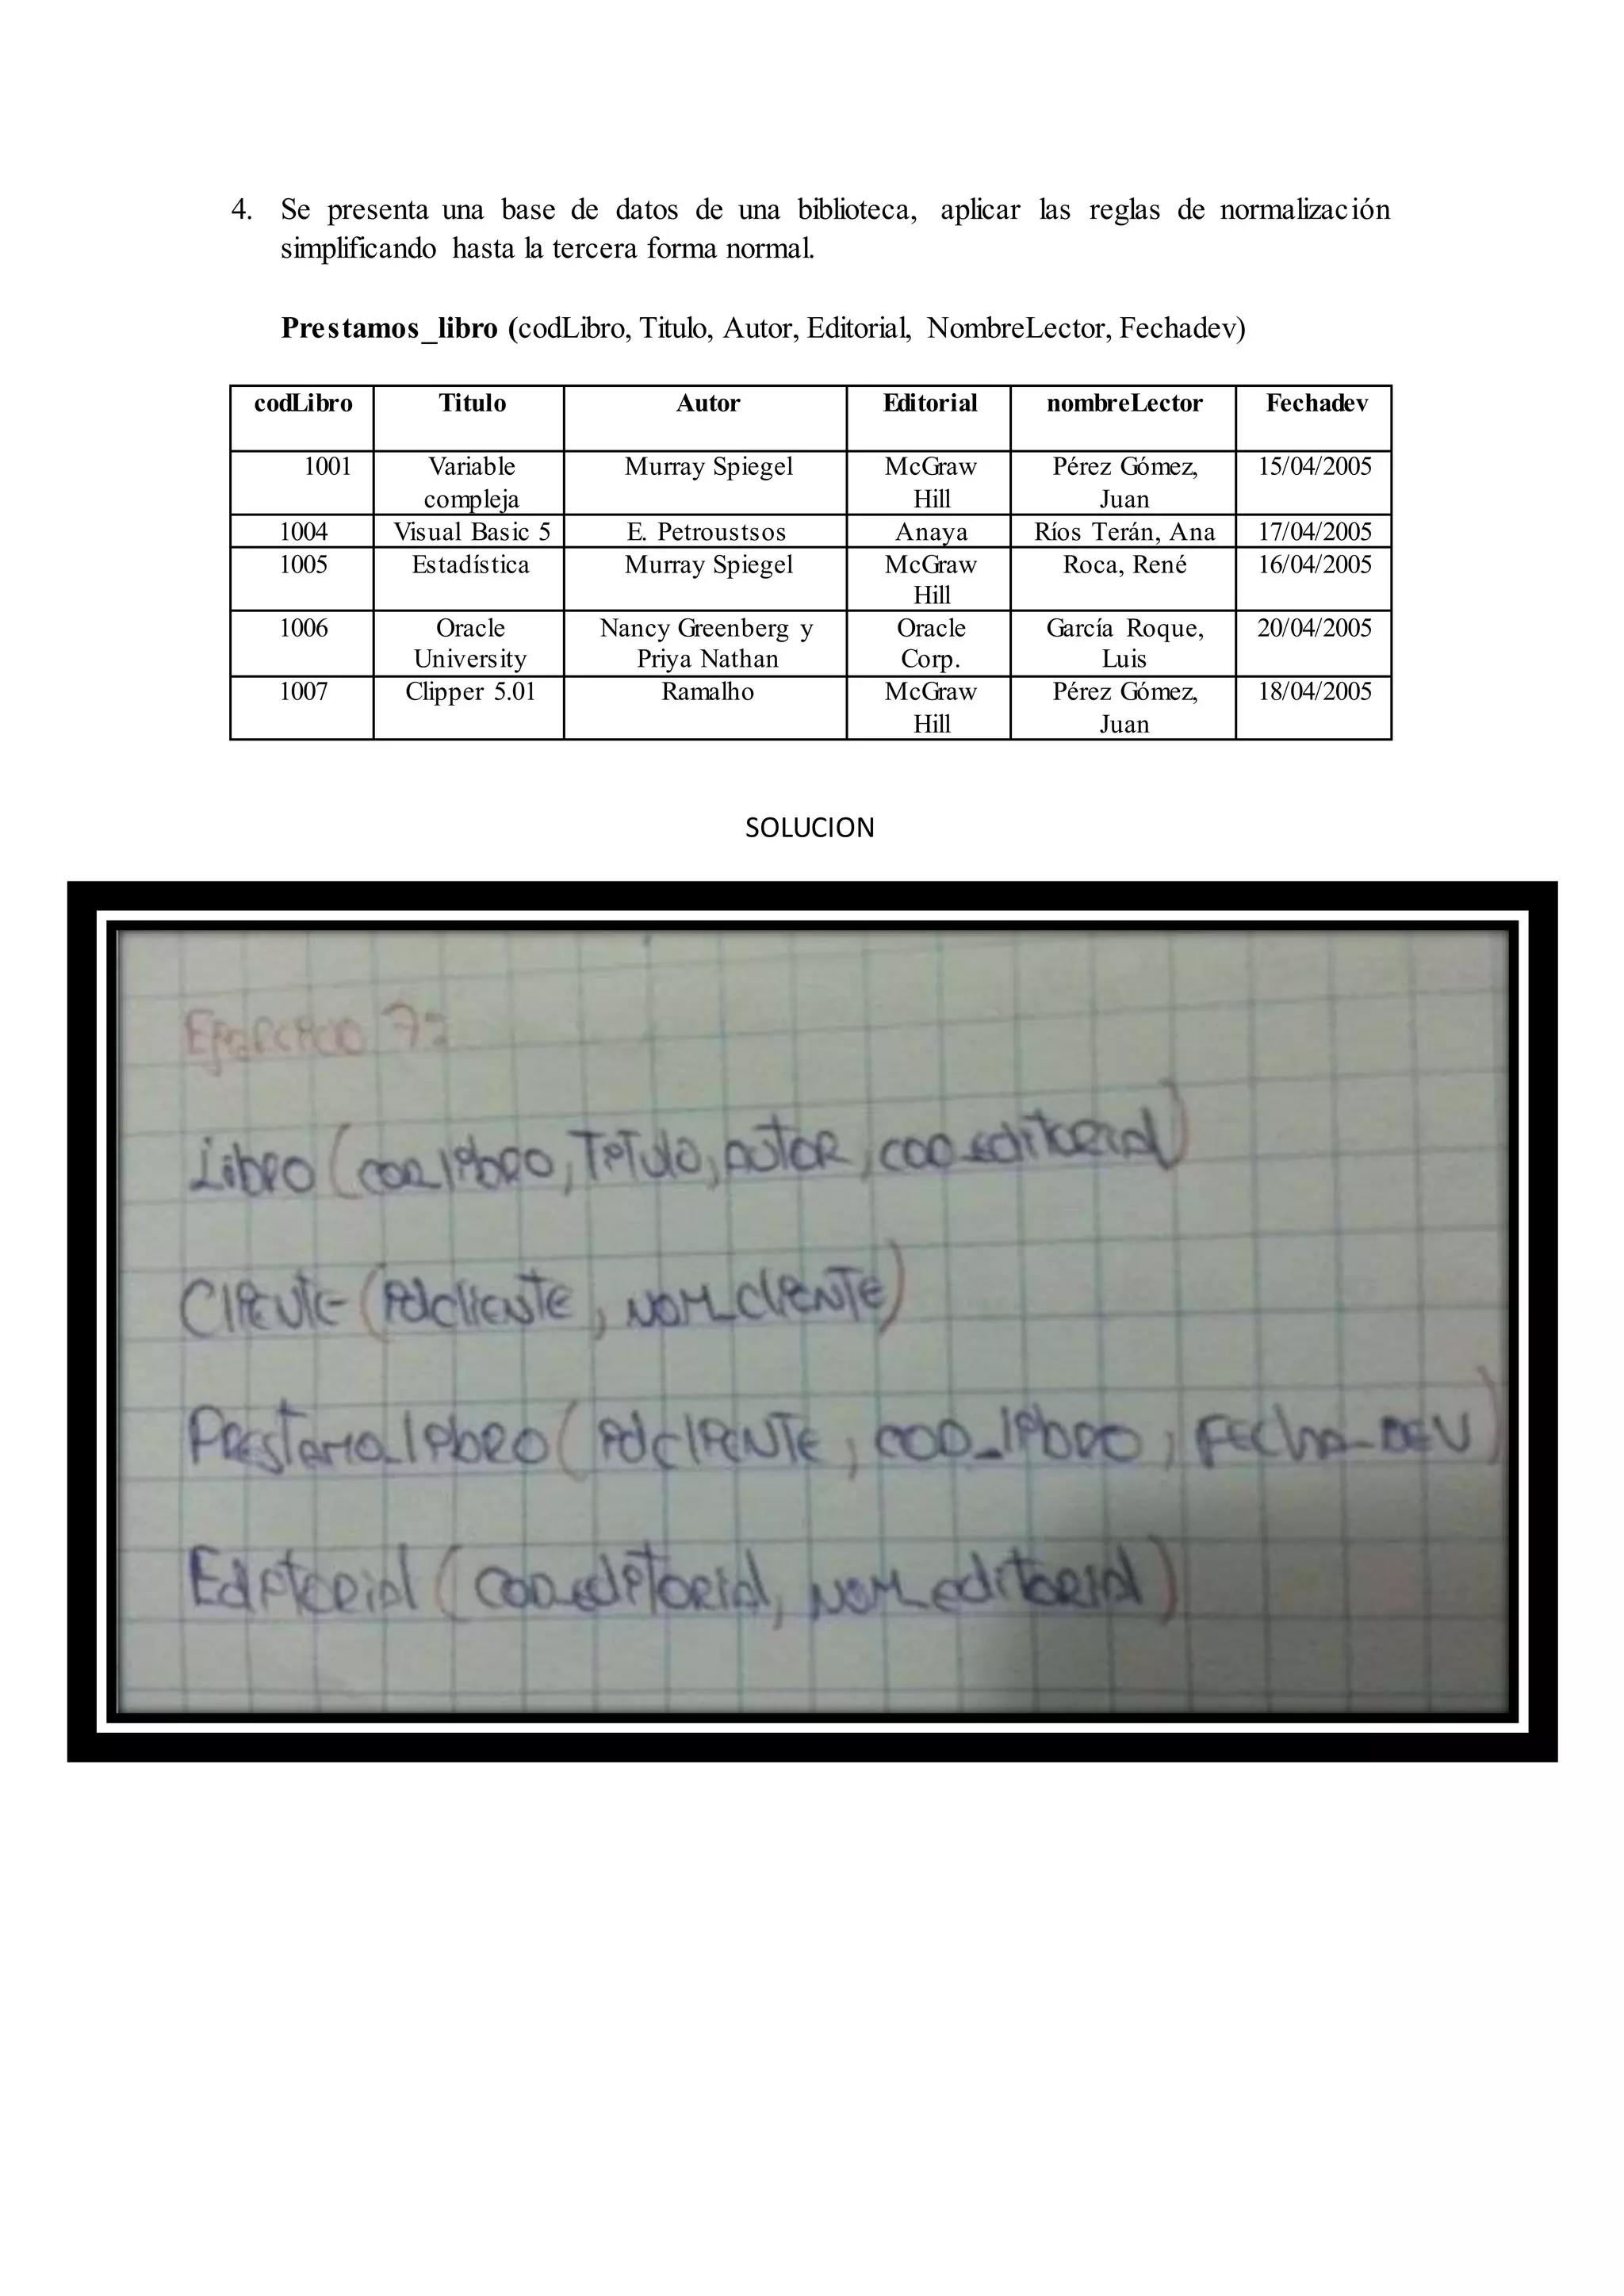 4. Se presenta una base de datos de una biblioteca, aplicar las reglas de normalización
simplificando hasta la tercera forma normal.
Prestamos_libro (codLibro, Titulo, Autor, Editorial, NombreLector, Fechadev)
codLibro Titulo Autor Editorial nombreLector Fechadev
1001 Variable compleja Murray Spiegel McGraw Hill Pérez Gómez, Juan 15/04/2005
1004 Visual Basic 5 E. Petroustsos Anaya Ríos Terán, Ana 17/04/2005
1005 Estadística Murray Spiegel McGraw Hill Roca, René 16/04/2005
1006 Oracle University Nancy Greenberg y Priya Nathan Oracle Corp. García Roque, Luis 20/04/2005
1007 Clipper 5.01 Ramalho McGraw Hill Pérez Gómez, Juan 18/04/2005
SOLUCION
Ejercicio 7:
Libro (COD_libro, Titulo, AUTOR, COD_editorial)
Cliente (idcliente, NOM_cliente)
Prestamo_libro (idcliente, COD_libro, FECHA_DEV)
Editorial (COD_editorial, NOM_editorial)